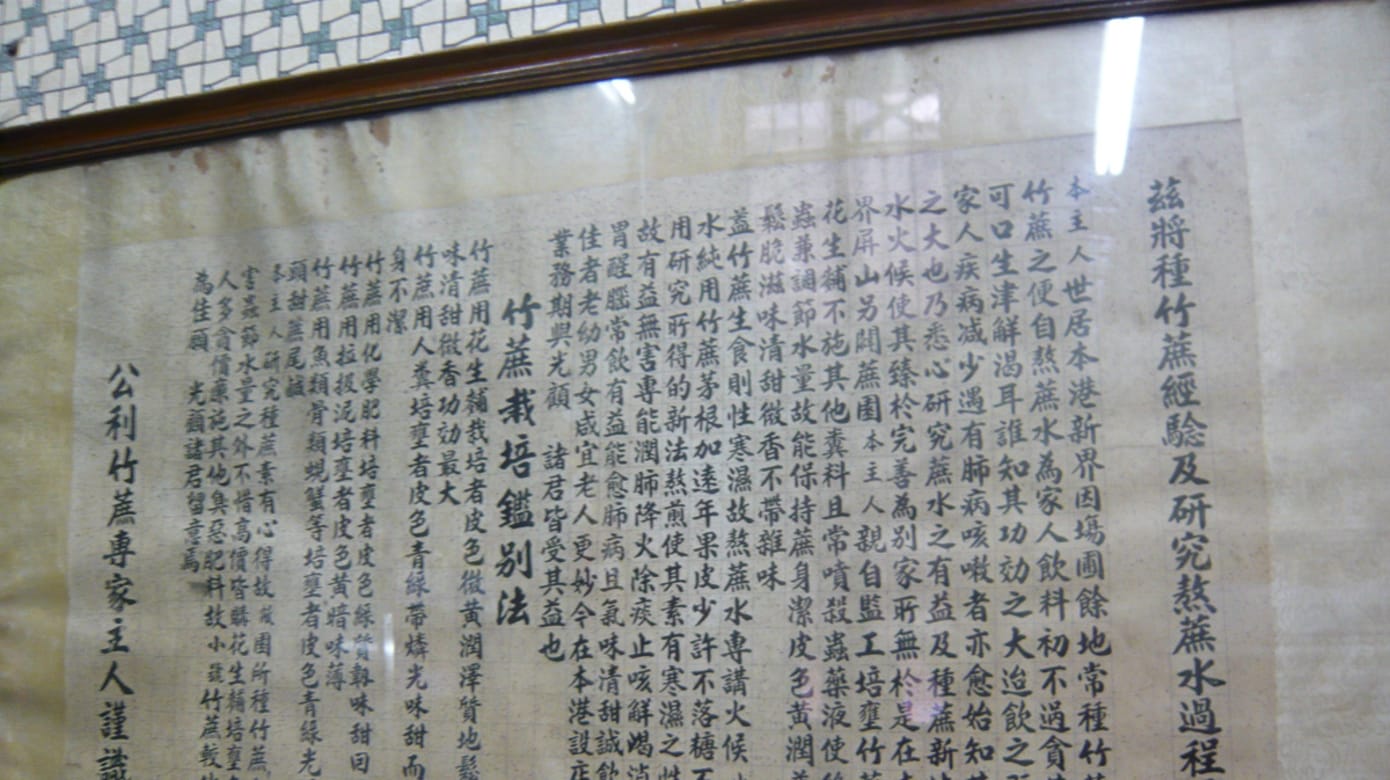 茲將種竹蔗經驗及研究熬蔗水過程
本主人世居本港新界因塲圃餘地常種竹
竹蔗之便自熬蔗水為家人飲料初不過貪
可口生津解渴耳誰知其功効之大迨飲之
家人疾病减少遇有肺病咳嗽者亦愈始知
之大也乃悉心研究蔗水之有益及種蔗新
水火候使其臻於完善為別家所無於是在
界屏山另闢蔗園本主人親自監工培壅竹
花生麩不施其他糞料且常噴殺蟲藥液使
蟲兼調節水量故能保持蔗身潔皮色黃潤
鬆脆滋味清甜微香不帶雜味
益竹蔗生食則性寒濕故熬蔗水專講火候
水純用竹蔗茅根加遠年果皮少許不落糖
用研究所得的新法熬煎使其素有寒濕之性
故有益無害專能潤肺降火除痰止咳解渴消
胃醒腦常飲有益能愈肺病且氣味清甜誠飲
佳者老幼男女咸宜老人更妙今在本港設店
業務期與光顧 諸君皆受其益也
竹蔗栽培鑑别法
竹蔗用花生麩栽培者皮色微黃潤澤質地鬆
味清甜微香功効最大
竹蔗用人糞培壅者皮色青綠帶燐光味甜而
身不潔
竹蔗用化學肥料培壅者皮色綠質韌味甜回
竹蔗用垃圾泥培壅者皮色黃暗味薄
竹蔗用魚類骨類蜆蟹等培壅者皮色青綠光
頭甜蔗尾
本主人研究種蔗素有心得故園所種竹蔗
害蟲節水量之外不惜高價皆購花生麩培壅
人多貪價廉施其他臭惡肥料故小號竹蔗較
為佳顧 光顧諸君留意焉
公利竹蔗專家主人謹識